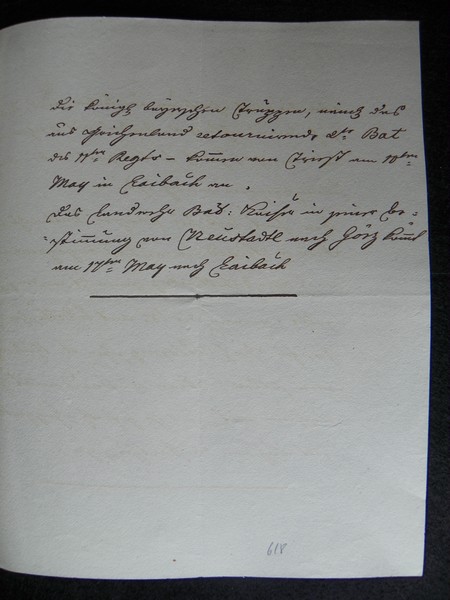 die königl bayrischen Truppen, und das
aus Griechenland retournirende 2te Bat
des 11ten Regts – komen von Triest am 10ten
May in Laibach an.
Das Landwehr Bat: Kaiser in seiner Be-
stimmung von Neustadtl nach Görz komt
am 17ten May nach Laibach
618